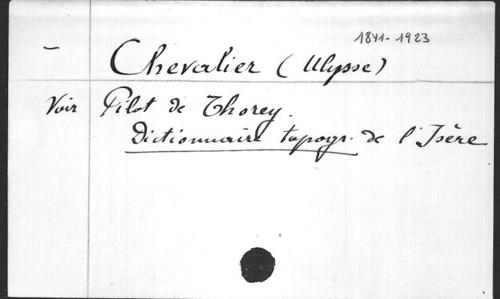 1841-1923
— Chevalier (Ulysse)
Voir Pilot de Thorey.
Dictionnaire topogr. de l'Isère